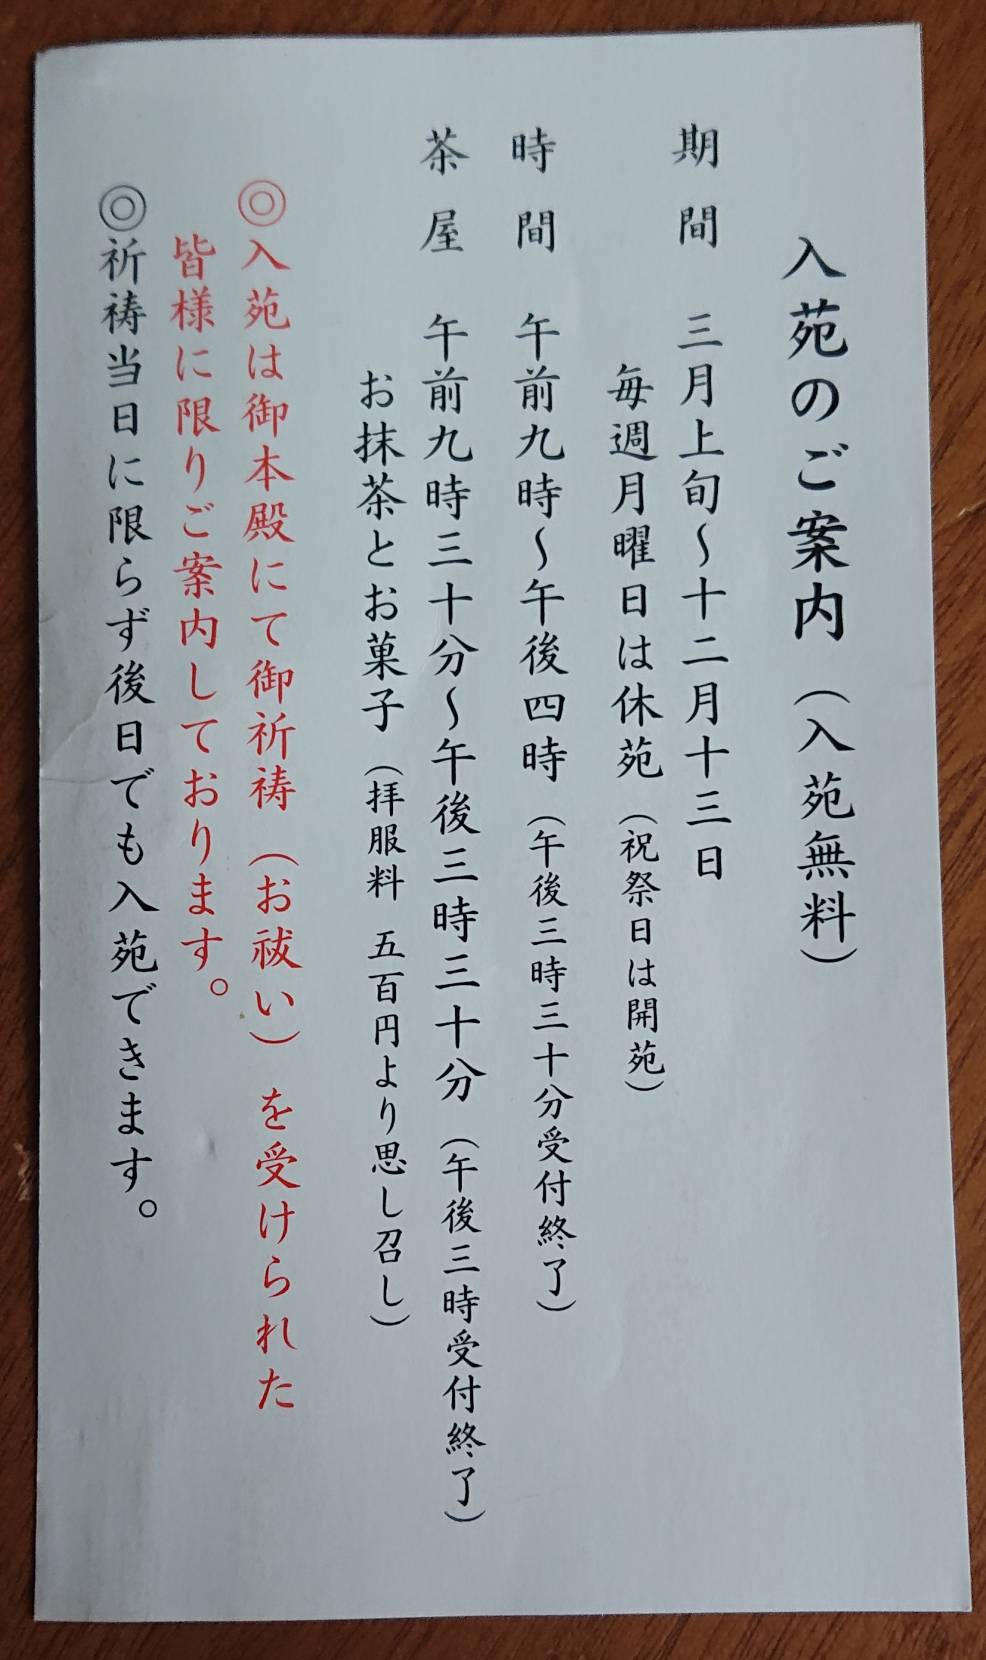 入苑のご案内（入苑無料）
期間　三月上旬～十二月十三日
毎週月曜日は休苑（祝祭日は開苑）
時間　午前九時～午後四時（午後三時三十分受付終了）
茶屋　午前九時三十分～午後三時三十分（午後三時受付終了）
お抹茶とお菓子（拝服料　五百円より思し召し）
◎入苑は御本殿にて御祈祷（お祓い）を受けられた
皆様に限りご案内しております。
◎祈祷当日に限らず後日でも入苑できます。